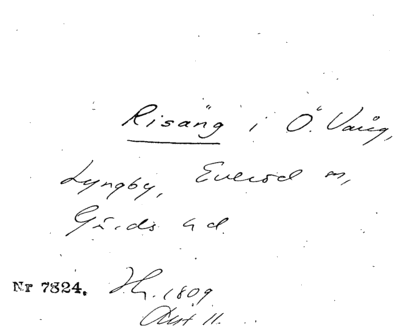 Risäng i Ö. Vång,
Lyngby, Everöd m,
Gärds hd.
Nr 7824. Hy. 1809
Akt 11.